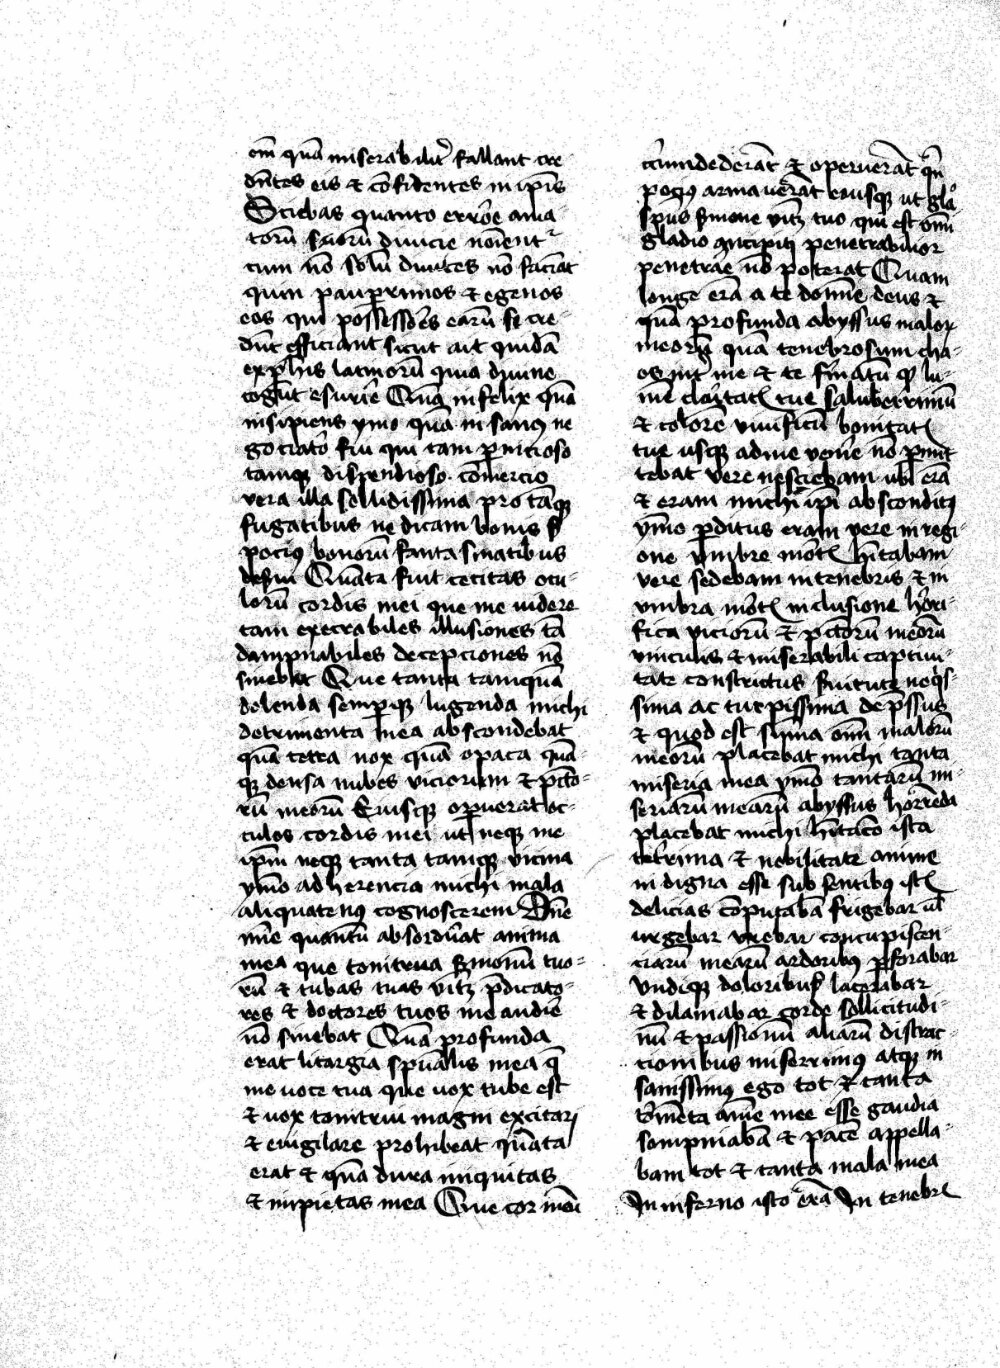 em̄ quā miserabilit̉ fallant cre-
dn̄tes eis et cōfidentes in ip̄is
Sciebas quanto errōe ama-
torū suorū diuicie noīent᷑
cum nō solū diuites nō faciāt
quin pauꝑrimos et egenos
eos qui possessōes earū se cre-
dūt efficiant sicut ait quidā
ex ph̄is latinorū quia diuine
cogūt esurīe Quā infelix quā
insipiens ymo quā insanꝰ ne
gociator̉ fui qui tam ꝑnicioso
tamqꝫ dispendioso cōmercio
vera illa solidissima pro tāqꝫ
fugatibus ne dicam bonis sꝫ
pociꝰ bonorū fantasmatibus
desui Quāta fuit cecitas ocu-
lorū cordis mei que me videre
tam execrabiles illusiones tā
dampnabiles decepciones nō
sinebat Que tanta tamquā
dolenda semꝑqꝫ lugenda michi
detrimenta mea abscondebat
quā tetra nox quā opaca quā
qꝫ densa nubes viciorum et pctō-
rū meorū Eiusqꝫ oꝑuerat oc-
culos cordis mei ut neqꝫ me
ipm̄ neqꝫ tanta tamqꝫ vicina
ymo adherencia michi mala
aliquatenꝰ cognoscerem Dn̄e
mīe quantū absordūat anima
mea que tonitrua sꝑmonū tuo-
rū et tubas tuas vitꝫ p̄dicato-
res et doctores tuos me audīe
nō sinebat Quā profunda
erat litargia spūalis mea q̄
me voce tua que vox tube est
et vox tonitrui magni excitari
et euigilare prohibeat quāta
erat et quā dura iniquitas
et impietas mea Que cor meū
circūdederāt et operuerāt qn̄
pociꝰ armauerāt eiusqꝫ ut gla
spūs sermone vitꝫ tuo qui est om̄i
gladio ancipiti penetrabilior
penetrāe nō poterat Quam
longe erā a te domīe deus et
quā profunda abyssus maloꝝ
meorū quā tenebrosum cha-
os int̉ me et te firmatū qꝫ lu-
mē claritatꝭ tue saluberrimū
et colorē viuificū bonitatꝭ
tue usqꝫ ad me venīe nō ꝑmit
tebat vere nesciebam ubi erā
et eram michi ipī absconditꝰ
ymo ꝑditus eram vere in regi-
one vmbre mortꝭ hītabam
vere sedebam in tenebris et in
vmbra mortꝭ inclusione horri-
fica viciorū et pctōrū meorū
vinculis et miserabili captiui-
tate constrictus suitute neqs-
sima ac turpissima dep̄ssus
et quod est sūma om̄i malorū
meorū placebat michi tanta
miseria mea ymo tantarū mi-
seriarū mearū abyssus horrēda
placebat michi hītacō ista
tet̉rima et nobilitate anime
indigna esse sub sentibꝰ istꝭ
delicias cōputabā frigebar ul̄
urgebar vrebar concupiscen-
ciarū mearū ardoribꝰ ꝑforabar
vndiqꝫ doloribus lacerabar
et dilaniabar corde sollicitudi-
nū et passionū aliarū distrac-
cionibus miserrimꝰ atqꝫ in
sanissimꝰ ego tot et tanta
tormēta anīe mee esse gaudia
sompniabā et pacē appella-
bam tot et tanta mala mea
In inferno isto erā In tenebrꝭ